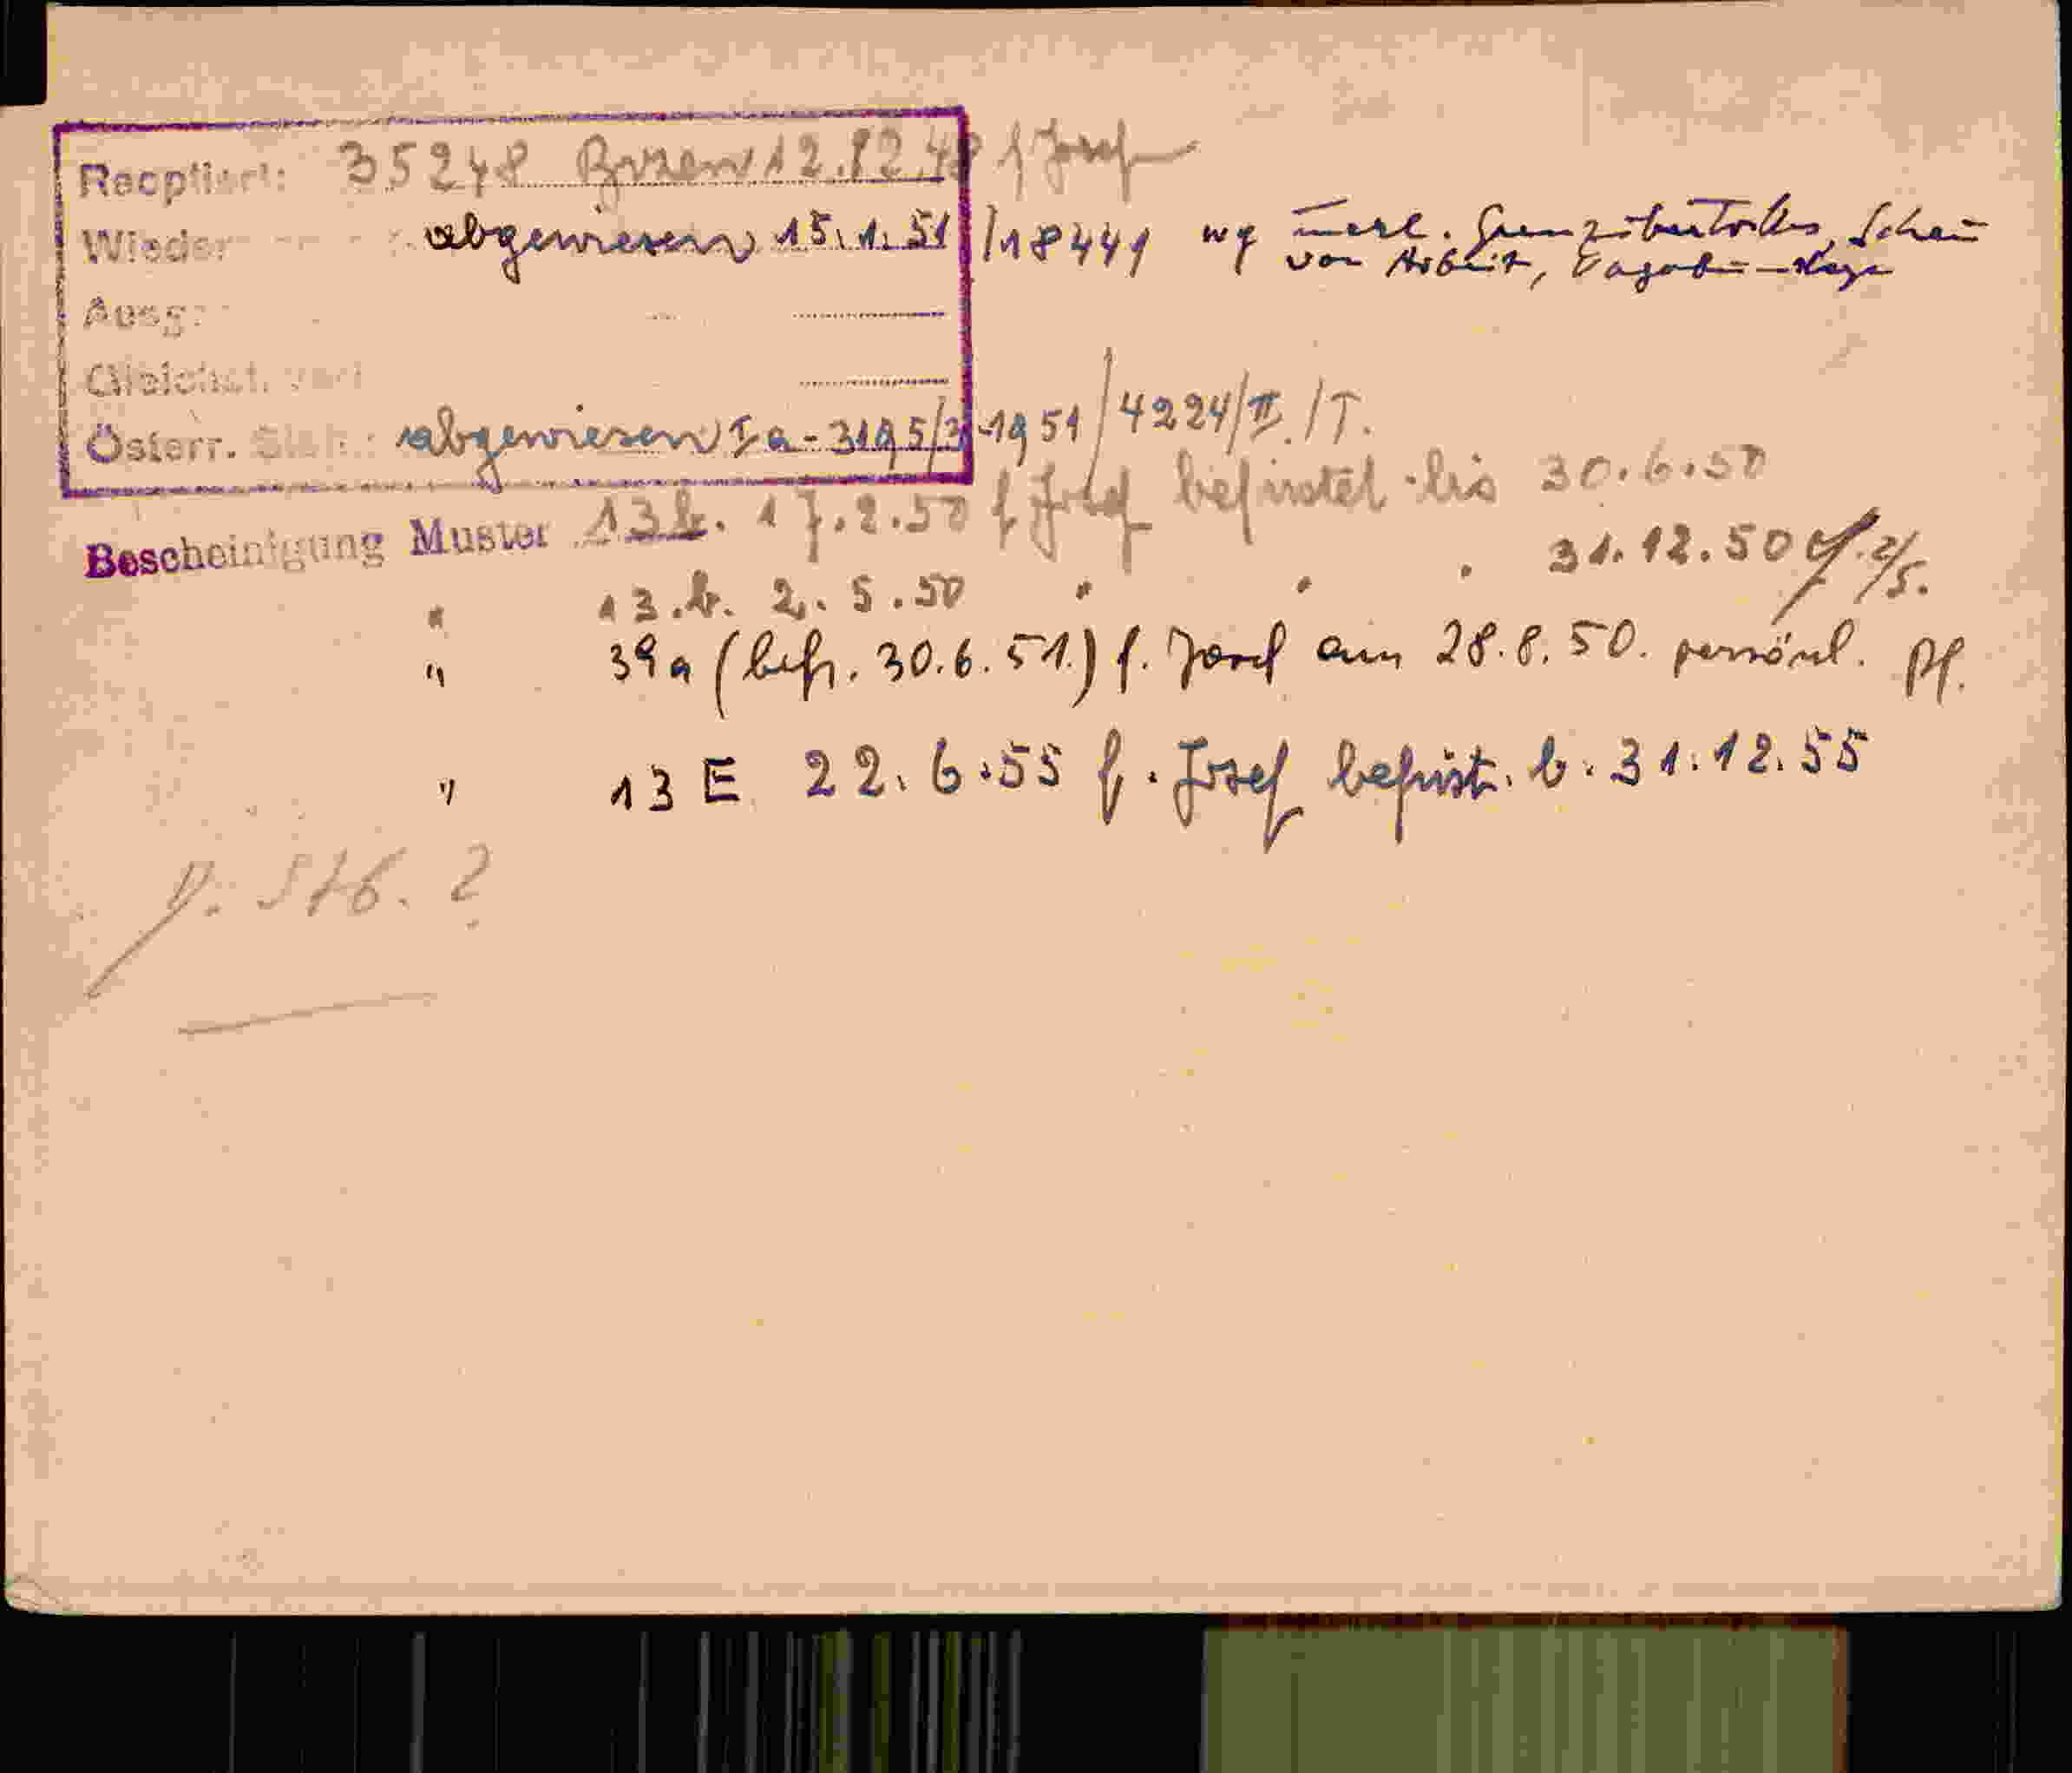 Rücptiert: 35248 Bozen 12.12.48 f Josef
Wieder abgewiesen 15.1.51 /18441 wg unerl. Grenzübertrittes, Scheu
von Arbeit,
Ausg
Gleichst.
Österr. abgewiesen Ia-3195/3-1951/4224/II./T.
Bescheinigung Muster 13b. 17.2.50 f Josef befristet bis 30.6.50
" 13.b. 2.5.50 " " " 31.12.50 2/5.
" 39a (befr. 30.6.51.) f. Josef am 28.8.50. persönl. Pf.
" 13 E 22.6.55 f. Josef befrist. b. 31.12.55
p. Stb. ?